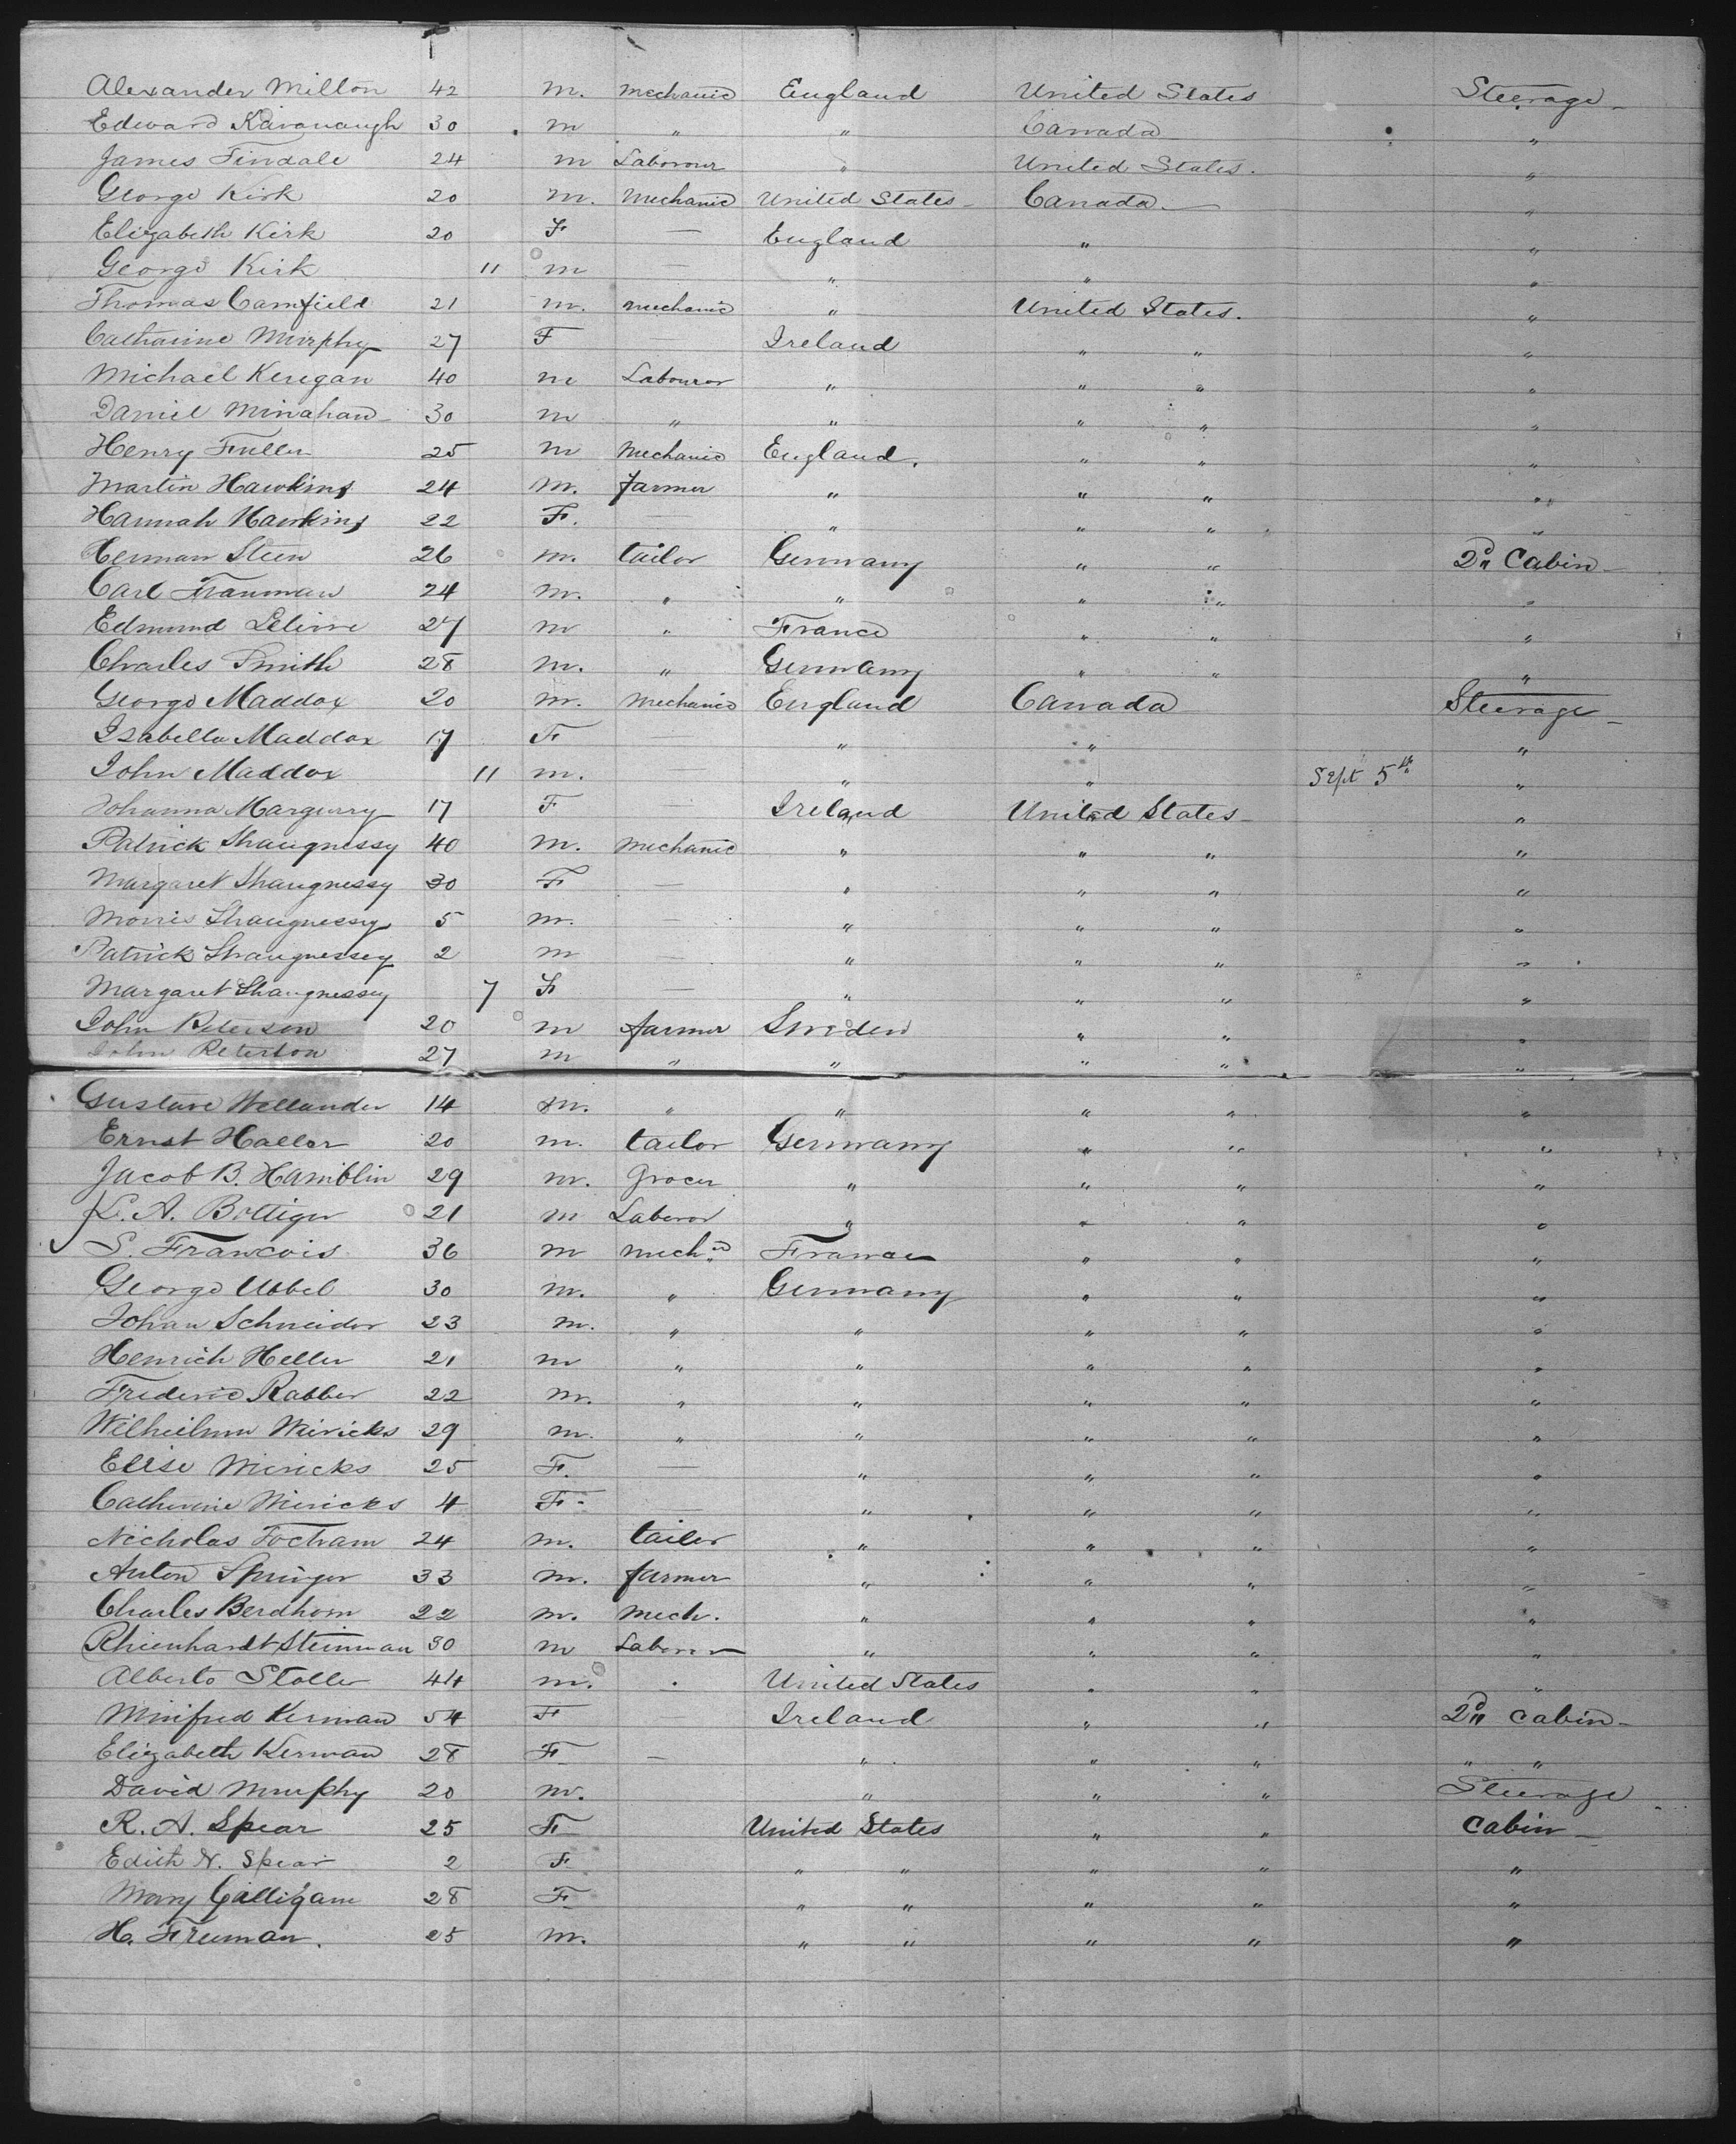 Alexander Milton 42 m. Mechanic England United States Steerage
Edward Kavanaugh 30 m " " Canada "
James Tindale 24 m Labourer " United States. "
George Kirk 20 m. Mechanic United States Canada "
Elizabeth Kirk 20 F — England " "
George Kirk 11 m — " " "
Thomas Camfield 21 m. mechanic " United States. "
Catharine Murphy 27 F — Ireland " " "
Michael Kerigan 40 m Labourer " " " "
Daniel Minahan 30 m " " " " "
Henry Fuller 25 m Mechanic England. " " "
Martin Hawkins 24 m. farmer " " " "
Hannah Hawkins 22 F. — " " " "
Herman Steen 26 m. tailor Germany " " 2d Cabin
Carl Trauman 24 m. " " " " "
Edmund 27 m " France " " "
Charles Smith 28 m. " Germany " " "
George Maddox 20 m. Mechanic England Canada Steerage
Isabella Maddox 17 F — " " "
John Maddox 11 m. " " Sept 5th "
Johanna Margurry 17 F — Ireland United States "
Patrick Shaugnessy 40 m. Mechanic " " " "
Margaret Shaugnessy 30 F — " " " "
Morris Shaugnessy 5 m. — " " " "
Patrick Shaugnessy 2 m — " " " "
Margaret Shaugnessy 7 F — " " " "
John Peterson 20 m farmer Sweden " " "
John Peterson 27 m " " " " "
Gustave Wellander 14 m. " " " " "
Ernst Haller 20 m. tailor Germany " " "
Jacob B. Hamblin 29 m. Grocer " " " "
L. A. Bottiger 21 m Laboror " " " "
S. Francois 36 m mech France " " "
George Ubbel 30 m. " Germany " " "
Johan Schneider 23 m. " " " " "
Henrich Heller 21 m " " " " "
Frederic Rabber 22 m. " " " " "
Wilheilmn Miricks 29 m. " " " " "
Elise Miricks 25 F. — " " " "
Catherine Miricks 4 F. — " " " "
Nicholas Focham 24 m. tailor " " " "
Anton Springer 33 m. farmer " " " "
Charles Berdhom 22 m. Mech. " " " "
Rhienhardt Steinman 30 m Laborer " " " "
Alberto Stoller 44 m. " United States " " "
Winifred Kerwan 54 F — Ireland " " 2d Cabin
Elizabeth Kerwan 28 F — " " " " "
David Murphy 20 m. " " " Steerage
R. A. Spear 25 F United States " " Cabin
Edith N. Spear 2 F " " " " "
Mary Galligam 28 F " " " " "
H. Freeman. 25 m. " " " " "